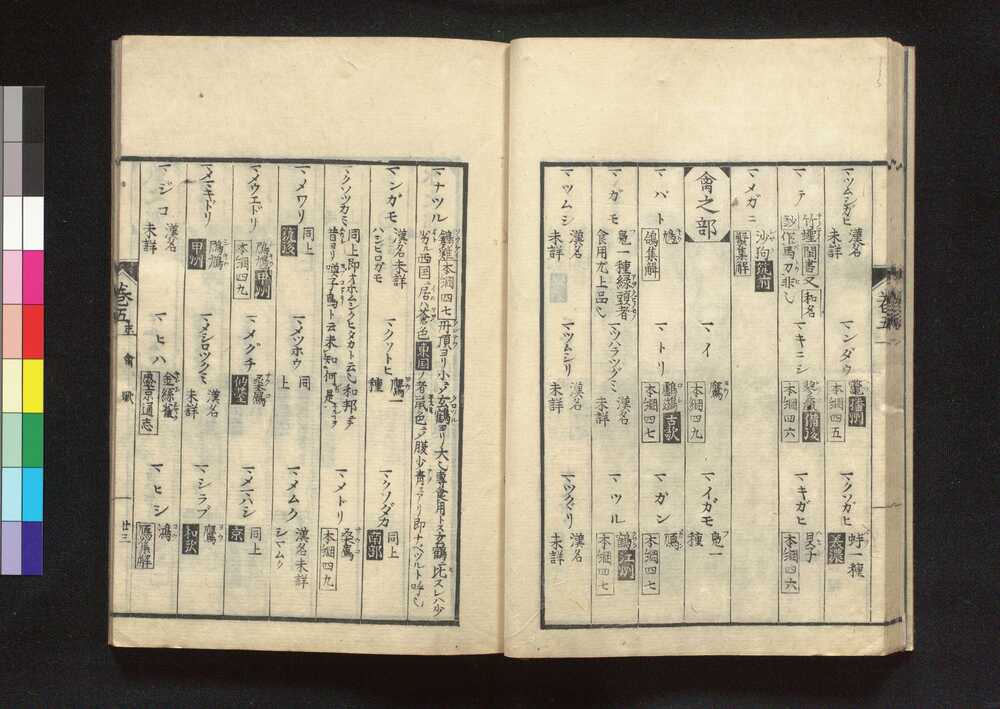 マツムシカヒ 漢名未詳
マンダウ 本綱四五
マクソガヒ 蚌一種 美濃
マテ 竹蟶 閩書 又和名鈔作馬刀非也
マキニシ 備後 本綱四六
マキガヒ 貝子 本綱四六
マメガニ 沙狗 筑前 蟹集解
禽之部
マイ 鷹 本綱四九
マイガモ 鳬一種
マバト 鳩 鴿集解
マトリ 古歌 本綱四七
マガン 鴈 本綱四七
マガモ 鳬一種緑頭者食用九上品也
マハラツグミ 漢名未詳
マツル 鶴 江州 本綱四七
マツムシ 漢名未詳
マツムシリ 漢名未詳
マツクヾリ 漢名未詳
マナツル 本綱四七 丹頂ヨリ小ク玄鶴ヨリ大也專食用トス玄鶴ニ比スレハ少
西国ニ居ハ蒼色 東国ノ者ハ色ニ腹少青ミアリ即ナベヅルト呼也
マンガモ 漢名未詳 ハシヒロガモ
マクソトヒ 鷹一種
マクソダカ 同上 南部
マクソツカミ 同上即オホムシクヒタカト云也和邦ニテ
昔ヨリ噪子鳥ト云未知何是
マメトリ 桑鳸 本綱四九
マメワリ 同上 筑後
マメツホウ 同上
マメムク 漢名未詳 シマムク
マメウエドリ 甲州 本綱四九
マメグチ 桑鳸 仙臺
マメハシ 同上 京
マメマキドリ 甲州
マメシロツクミ 漢名未詳
マシラブ 鷹 和歌
マジコ 漢名未詳
マヒハ 金絲雀 盛京通志
マヒシ 鴻 鴈集解
巻五 禽 獸 廿三